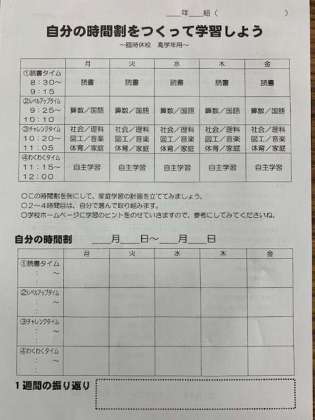 ＿＿年＿＿組（　　　　　　）
自分の時間割をつくって学習しよう
～臨時休校　高学年用～
月　火　水　木　金
①読書タイム
8：30～
9：15
読書　読書　読書　読書　読書
②レベルアップタイム
9：25～
10：10
算数／国語　算数／国語　算数／国語　算数／国語　算数／国語
③チャレンジタイム
10：20～
11：05
社会／理科　社会／理科　社会／理科　社会／理科　社会／理科
図工／音楽　図工／音楽　図工／音楽　図工／音楽　図工／音楽
体育／家庭　体育／家庭　体育／家庭　体育／家庭　体育／家庭
④わくわくタイム
11：15～
12：00
自主学習　自主学習　自主学習　自主学習　自主学習
○この時間割を例にして、家庭学習の計画を立ててみましょう。
○2～4時間目は、自分で選んで取り組みます。
○学校ホームページに学習のヒントをのせていきますので、参考にしてみてくださいね。
自分の時間割　＿＿月＿＿日～＿＿月＿＿日
月　火　水　木　金
①読書タイム
：　～
：
②レベルアップタイム
：　～
：
③チャレンジタイム
：　～
：
④わくわくタイム
：　～
：
１週間の振り返り